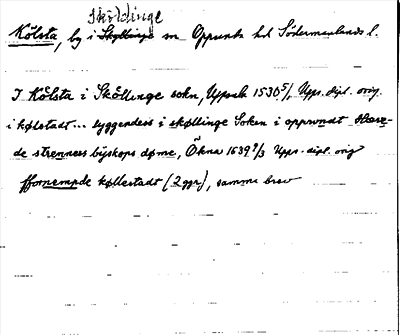 Sköldinge
Kölsta, by i Skyllinge sn Oppunda hd Södermanlands l.
I Kölsta i Sköllinge sokn, Uppsala 1530 5/1 Upps. dipl. orig.
i kølstadt... byggendess i skøllinge Soken i opprundt
de strenness bijskops døme, Ökna 1639 9/3 Upps. dipl. orig
ffornempde køllestadt (2 ggr), samma brev